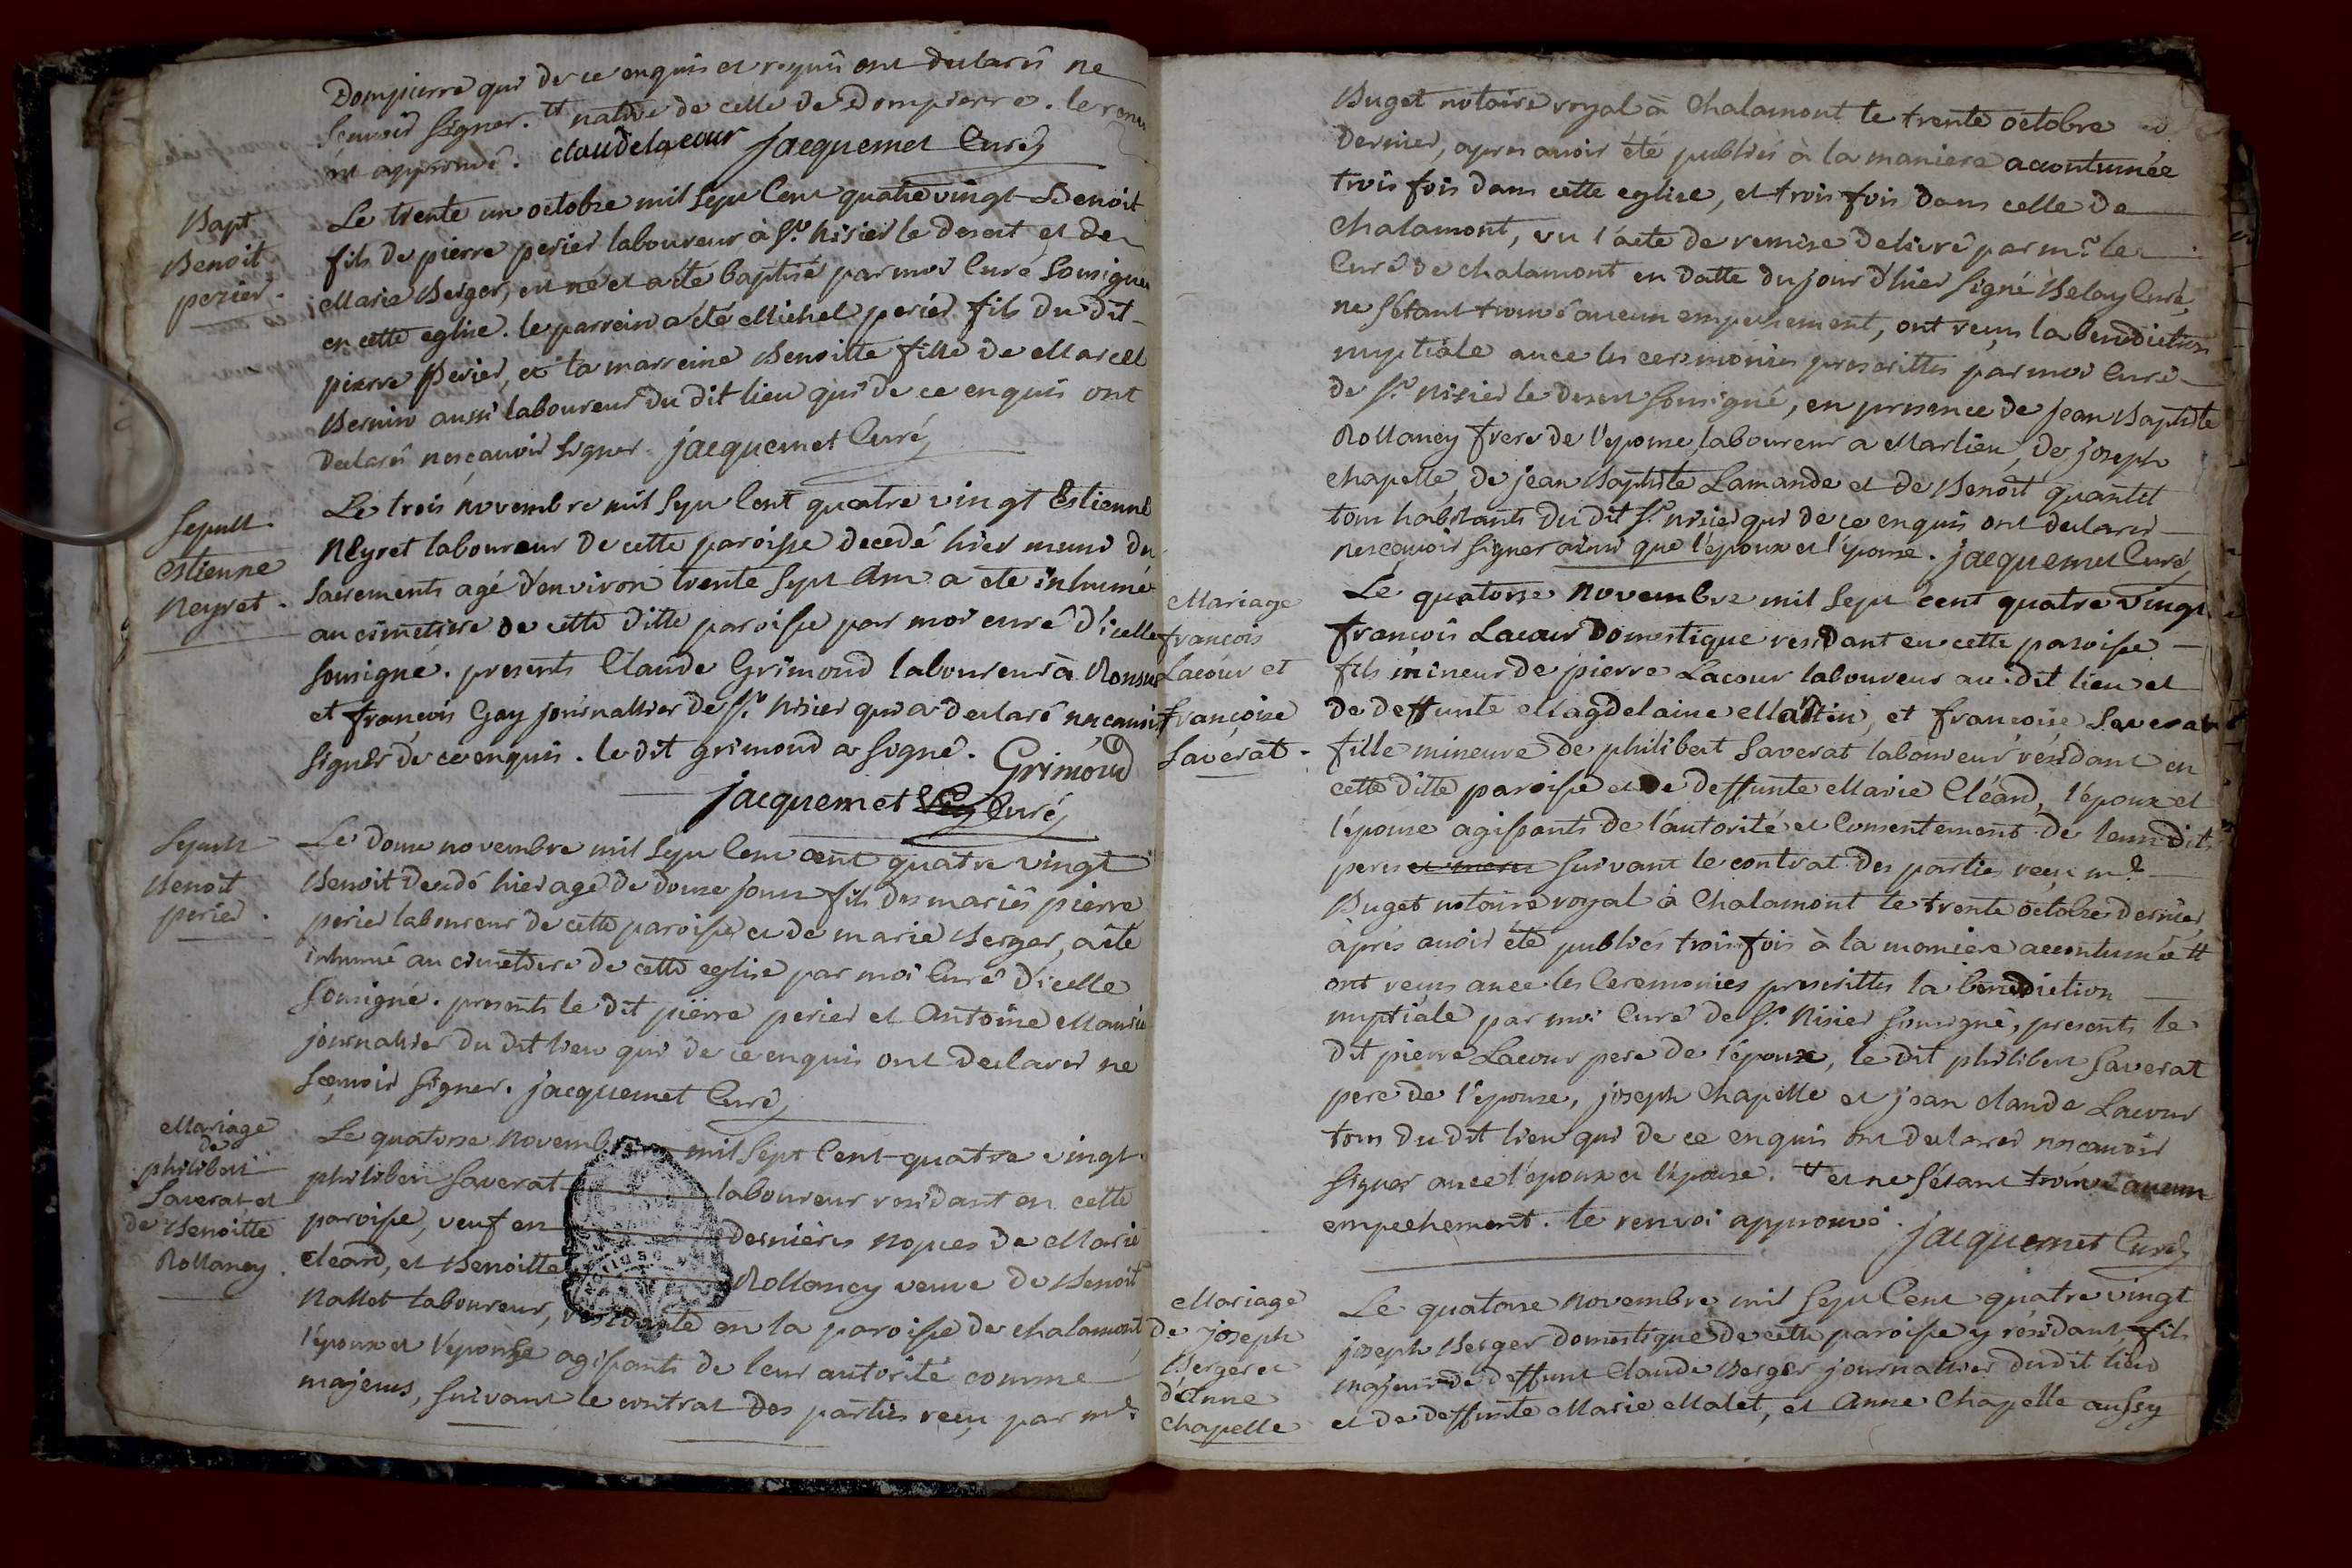 Dompierre qui de ce enquis et requis ont declarés ne
scauoir signer. tt native de celle de Dompierre. le renv
oi approuvé. claudelacour jacquemet Curé
Bapt
Benoit
perier.
Le trente un octobre mil sept Cent quatre vingt Benoit
fils de pierre perier laboureur à St. Nisier le desert et de
Marie Berger, est né et a été baptisé par moi Curé soussigné
en cette eglise. le parrein a été Michel perier fils du dit
pierre Perier, et la marreine Benoitte fille de Marcel
Bernin aussi laboureur du dit lieu qui de ce enquis ont
declarés ne scauoir signer. jacquemet Curé
Sepult.
Estienne
Neyret.
Le trois novembre mil sept Cent quatre vingt Estienne
Neyret laboureur de cette paroisse decedé hier muni du
sacrements agé d'environ trente sept Ans a été inhumé
au cimetiere de cette ditte paroisse par moi curé d'icelle
sousigné. presents Claude Grimoud laboureur à
et françois Gay journallier de St. Nisier qui a declaré ne scauoir
signer de ce enquis. le dit grimoud a signé. Grimoud
jacquemet Curé
Sepult
Benoit
perier.
Le douze novembre mil sept Cent cent quatre vingt
Benoit decedé hier agé de douze jours fils des mariés pierre
perier laboureur de cette paroisse et de marie Berger, a été
inhumé au cimetiere de cette eglise par moi Curé d'icelle
sousigné. presents le dit pierre perier et Antoine
journallier du dit lieu qui de ce enquis ont declarés ne
sçauoir signer. jacquemet Curé
Mariage
de
philibert
Saverat et
de Benoitte
Rollancy.
Le quatorse novembre mil sept Cent quatre vingt
philibert Saverat laboureur residant en cette
paroisse, veuf en dernieres nopces de Marie
cléard, et Benoitte Rollancy veuve de Benoit
Nallet laboureur, residante en la paroisse de chalamont,
l'epoux et l'epouse agissants de leur autorité comme
majeurs, suivant le contrat des parties reçu par me.
Buget notaire royal à Chalamont le trente octobre
dernier, apres avoir été publiés à la maniere accoutumée
trois fois dans cette eglise, et trois fois dans celle de
Chalamont, vu l'acte de remise delivré par mr. le
Curé de chalamont en datte du jour d'hier signé Belay Curé,
ne s'étant trouvé aucun empechement, ont reçus la benediction
nuptiale avec les ceremonies prescrittes par moi Curé
de St. nisier le desert sousigné, en presence de jean Baptiste
Rollancy frere de l'epouse laboureur a Marlieu, de joseph
chapelle, de jean Baptiste Lamande et de Benoit quantet
tous habitants du dit St. nisier qui de ce enquis ont declarés
ne scauoir signer ainsi que l'epoux et l'epouse. jacquemet Curé
Mariage
françois
Lacour et
françoise
Saverat.
Le quatorse Novembre mil sept cent quatre vingt
françois Lacour Domestique residant en cette paroisse
fils mineur de pierre Lacour laboureur au dit lieu et
de deffunte Magdelaine Martin, et françoise Saverat
fille mineure de philibert Saverat laboureur résidant en
cette ditte paroisse et de deffunte Marie Cléard, l'époux et
l'épouse agissants de l'autorité et Consentement de leurs dits
peres et meres suivant le contrat des parties reçu me.
Buget notaire royal à Chalamont le trente octobre dernier
après avoir été publiés trois fois à la maniere accoutumée tt
ont reçus avec les Ceremonies prescrittes la benediction
nuptiale par moi Curé de St. Nisier sousigné, presents le
dit pierre Lacour pere de l'époux, le dit philibert Saverat
pere de l'epouse, joseph Chapelle et jean claude Lacour
tous du dit lieu qui de ce enquis ont declarés ne scauoir
signer avec l'epoux et l'épouse. tt et ne s'étant trouvé aucun
empechement. le renvoi approuvé. jacquemet Curé
Mariage
de joseph
Berger et
d'Anne
Chapelle
Le quatorse novembre mil sept Cent quatre vingt
joseph Berger domestique de cette paroisse y résidant, fils
majeur de deffunt Claude Berger journallier dudit lieu
et de deffunte Marie Malet, et Anne Chapelle aussy